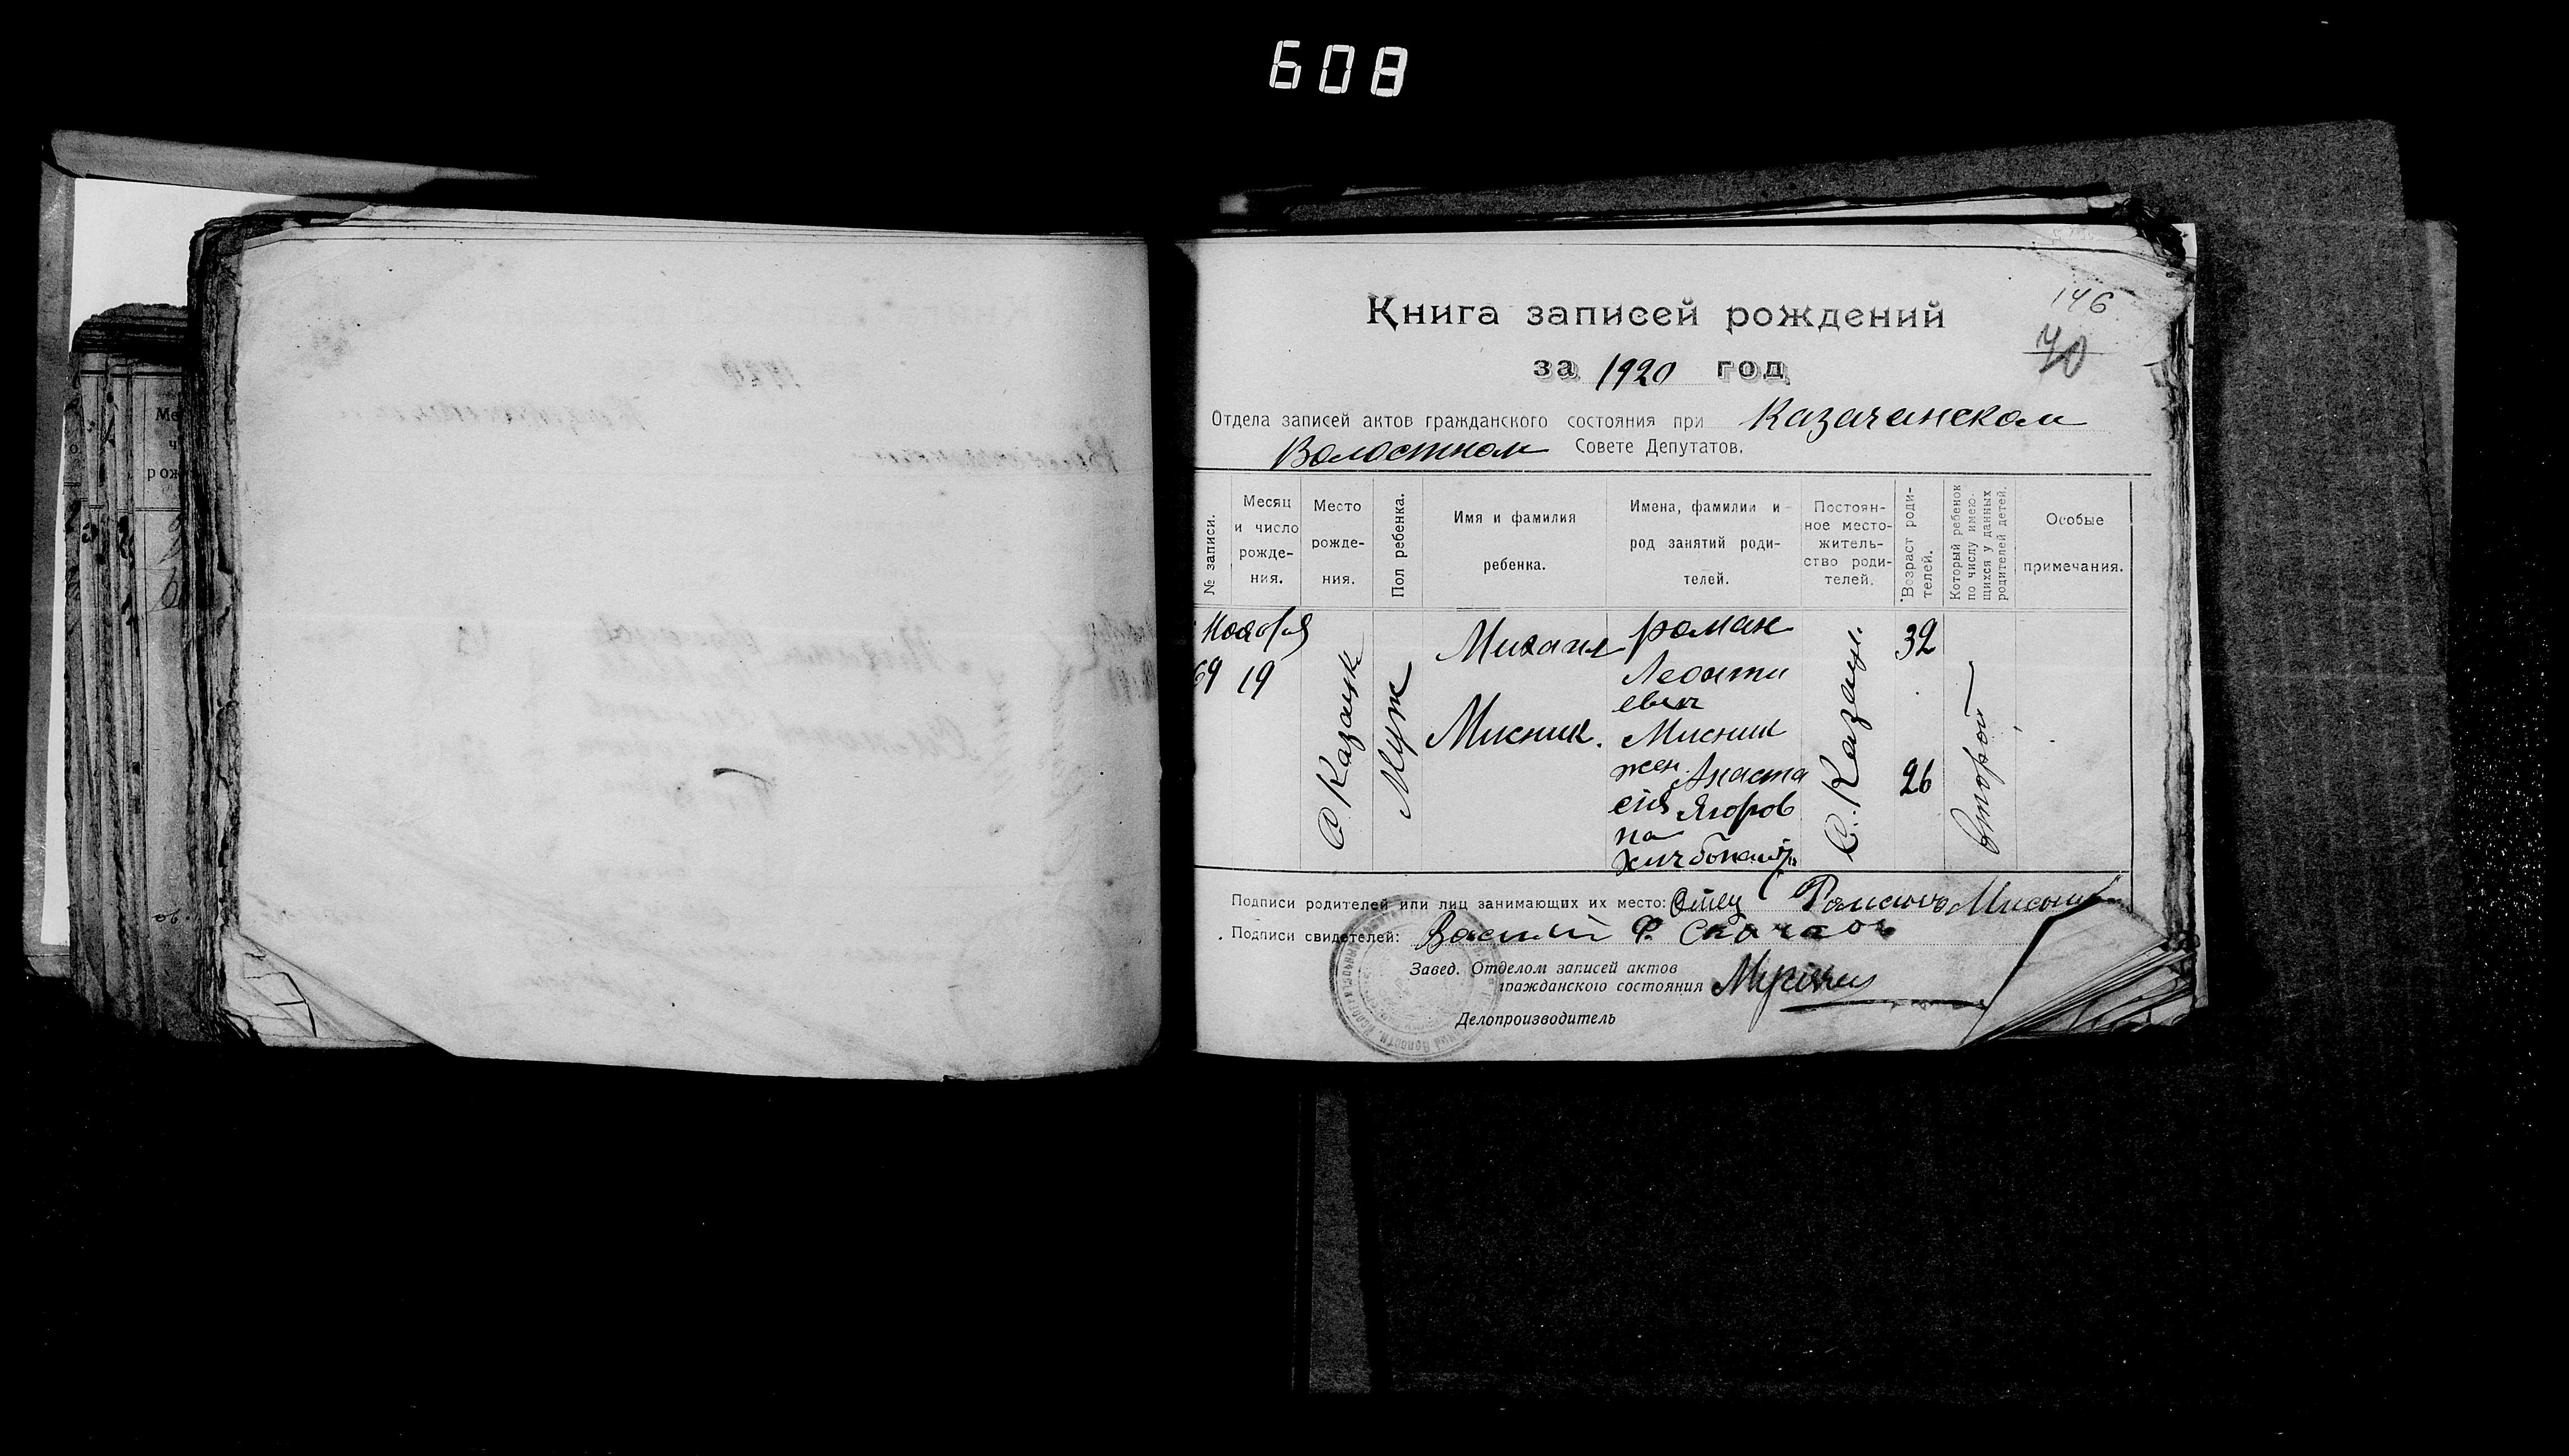 608
146
70
Книга записей рождений
за 1920 год
Отдела записей актов гражданского состояния при Казачанском
Волостном Совете Депутатов.
№ записи.
Месяц и число рождения.
Место рождения.
Пол ребенка.
Имя и фамилия ребенка.
Имена, фамилии и род занятий родителей.
Постоянное местожительство родителей.
Возраст родителей.
Который ребенок по числу имеющихся у данных родителей детей.
Особые примечания.
69
Ноября
19
С Казацк
Муж
Михаил
Мисник.
роман
Леонти
евич
Мисник
жен. Анаста
сия Ягоров
на
хлебопаш
С. Казацк.
32
26
второй
Подписи родителей или лиц занимающих их место: Отец Романъ Мисник
Подписи свидетелей: Василий Ф.
Завед. Отделом записей актов
гражданского состояния
Делопроизводитель
Ме
ч
рож